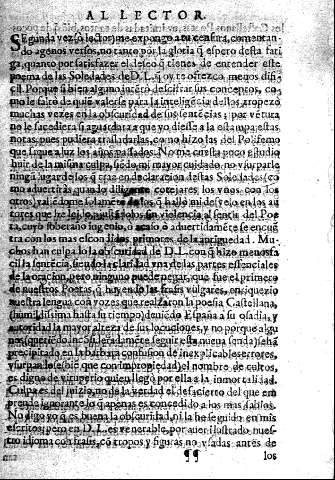 AL LECTOR.
Segunda vez, ò lector me expongo a tu censura, comentan-
do agenos versos, no tanto por la gloria q̃ espero desta fati
ga, quanto por satisfazer el deseo q̃ tienes de entender este
poema de las Soledades de D.L. q̃ oy te ofrezco menos difi
cil. Porque si bien alguno intẽtò descifrar sus conceptos, co-
mo le faltò de quiẽ valerse para la inteligẽcia dellos, tropezò
muchas vezes en la obscuridad de sus sentẽcias; por vẽtura
no le sucediera si aguardara a que yo diesse a la estampa estas
notas, para no pudiera trasladarlas, como hizo las del Polifemo
que saque a luz los años passados. No me
de la misma culpa, siẽdo mi mayor cuidado, no usurparle
ningũ lugar de los q̃ trae en declaracion destas Soledades (co
mo advertiràs quando diligente cotejares los unos con los
otros) valiẽdome solamẽte de los q̃ hallò mi desvelo en los au
tores que he leido, sin violencia al sentir del Poe
ta, cuyo soberano ingenio, o acaso, ò advertidamẽte se encuẽ
tra con los mas escondidos primores de la antiguedad. Mu-
chos han culpado la obscuridad de D.L. con q̃ hizo menos fa
cil la sentẽcia, siendo la claridad una de las partes essenciales
de la oracion, pero ninguno puede negar, que fue el primero
de nuestros Poetas, q̃ huyendo las frasis vulgares, enriquezio
nuestra lengua con vozes que realzaron la poesia Castellana,
(humildissima hasta su tiempo) deviendo España a su osadia, y
autoridad la mayor alteza de sus locuciones, y no porque algu
nos (queriendo incõsideradamẽte seguir esta nueva senda) se hã
precipitado en la barbara confusion de inexplicables errores,
usurpandose (bien que con impropiedad) el nombre de cultos,
es digno de vituperio quien llegò por ella a la inmortalidad.
Culpa es del juizio, no de la verdad el desacierto del que em
prende ignorante lo q̃ apenas es concedido a los mas sabios.
No digo yo q̃ es buena la obscuridad, ni la he seguido en mis
escritos, pero en D.L. es venerable, por aver ilustrado nues-
tro idioma con frasis, cõ tropos y figuras no usadas antes de
¶¶ los